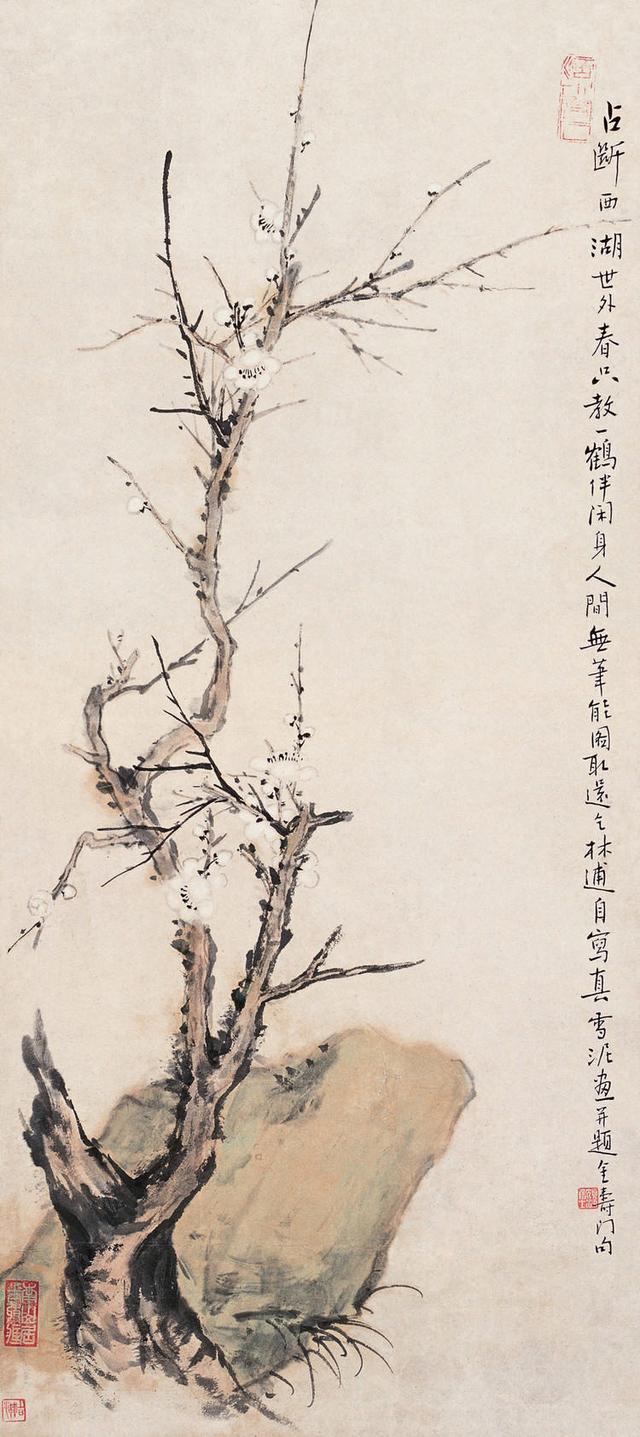 占斷西湖世外春只教一鶴伴閑身人間無筆能圖取還乞林逋自寫真雪泥畫并題金壽門句